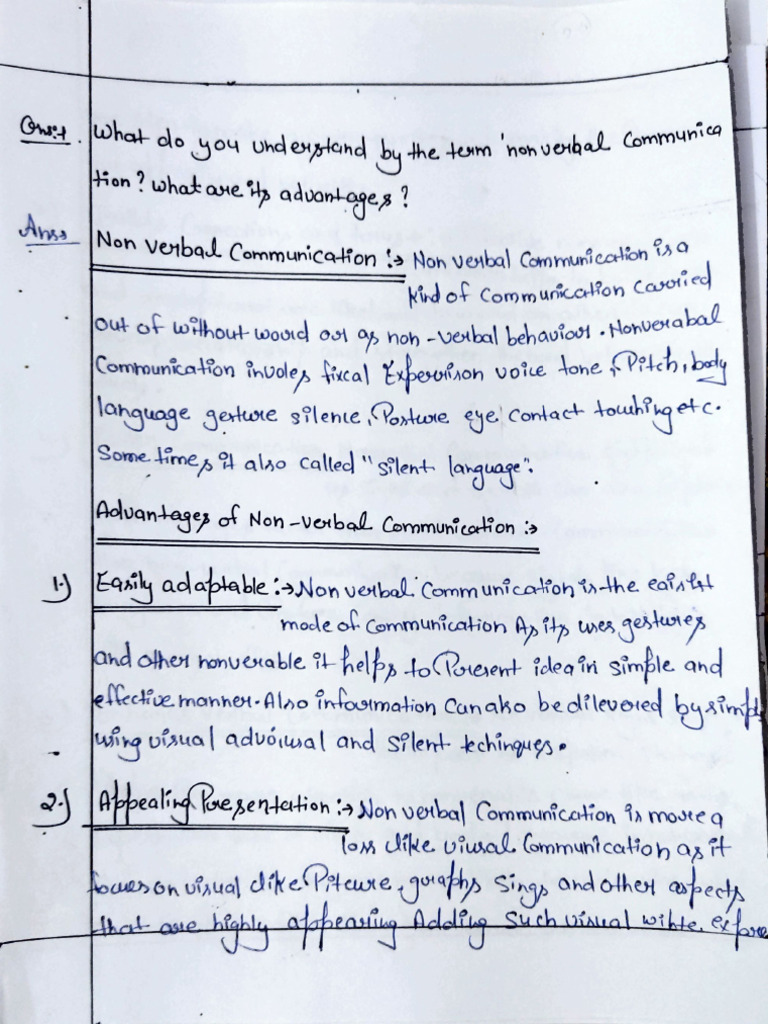 Ques:1. What do you understand by the term 'non verbal Communica
tion? What are its advantages?
Ans:
Non Verbal Communication :→ Non verbal Communication is a
kind of Communication Carried
out of without word or as non-verbal behaviour. Nonverabal
Communication involes fixcal Expervison voice tone, Pitch, body
language gerture silence, Posture eye contact touching etc.
Some times it also called "silent language".
Advantages of Non-verbal Communication :→
1.) Easily adaptable :→ Non verbal Communication is the
mode of Communication As its uses gestures
and other nonverable it helps to Present idea in simple and
effective manner. Also information Can also be dilevered by simple
using visual and Silent techinques.
2.) Appealing Presentation :→ Non verbal Communication is more a
loss like Communication as it
focues on visual like Pitcure, graphs Sings and other aspects
that are highly appearing Adding Such visual